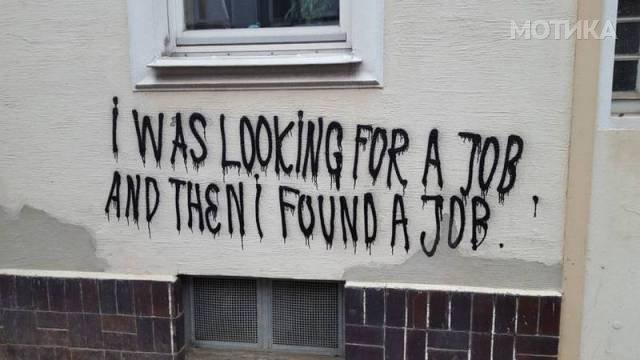 МОТИКА
i WAS LOOKiNG FOR A JOB
AND THEN i FOUND A JOB.